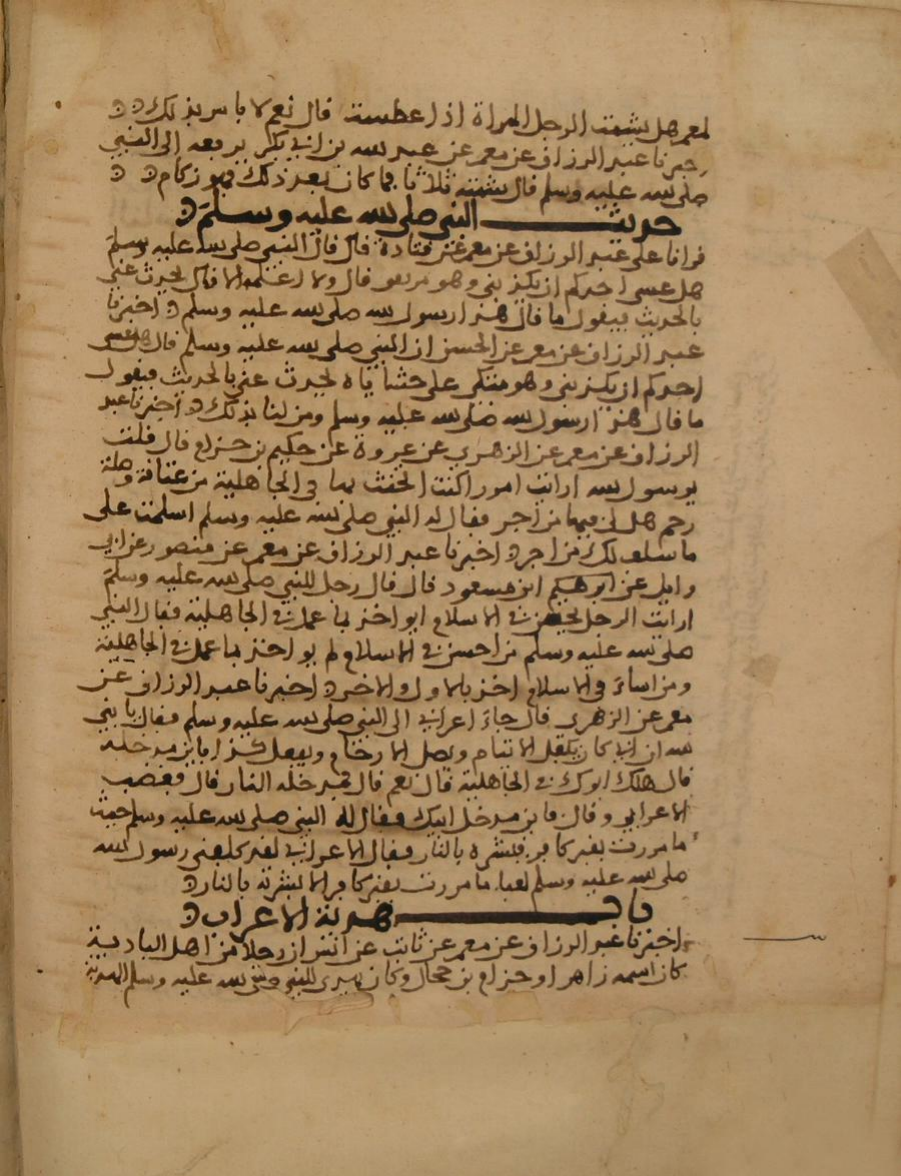 لمعمر هل يشمت الرجل المراة اذا عطست قال نعم لا باس بذلك
اخبرنا عبد الرزاق عن معمر عن عبد الله بن ابي بكر يرفعه الى النبي
صلى الله عليه وسلم قال يشمته ثلاثا فما كان بعد ذلك فهو زكام
حديث النبي صلى الله عليه وسلم
قرانا على عبد الرزاق عن معمر عن قتادة قال قال النبي صلى الله عليه وسلم
هل عسى احدكم ان يكذبني وهو مرتفق قال ولا اعلمه الا قال يحدث عني
بالحديث فيقول ما قال هذا رسول الله صلى الله عليه وسلم اخبرنا
عبد الرزاق عن معمر عن الحسن ان النبي صلى الله عليه وسلم قال هل عسى
احدكم ان يكذبني وهو متكى على حشاياه يحدث عني بالحديث فيقول
ما قال هذا رسول الله صلى الله عليه وسلم ومن لنا بذلك اخبرنا عبد
الرزاق عن معمر عن الزهري عن عروة عن حكيم بن حزام قال قلت
يرسول الله ارايت امورا كنت اتحنث بها في الجاهلية من عتاقة وصلة
رحم هل لي فيها من اجر فقال له النبي صلى الله عليه وسلم اسلمت على
ما سلف لك من اجر اخبرنا عبد الرزاق عن معمر عن منصور عن ابي
وايل عن ابن مسعود قال قال رجل للنبي صلى الله عليه وسلم
ارايت الرجل يحسن في الاسلام ايواخذ بما عمل في الجاهلية فقال النبي
صلى الله عليه وسلم من احسن في الاسلام لم يواخذ بما عمل في الجاهلية
ومن اساء في الاسلام اخذ بالاول والاخر اخبرنا عبد الرزاق عن
معمر عن الزهري قال جاء اعرابي الى النبي صلى الله عليه وسلم فقال يا نبي
الله ان ابي كان يكفل الايتام ويصل الارحام ويفعل كذا فاين مدخله
قال هلك ابوك في الجاهلية قال نعم قال فمدخله النار قال فغضب
الاعرابي وقال فاين مدخل ابيك فقال له النبي صلى الله عليه وسلم حيث
ما مررت بقبر كافر فبشره بالنار فقال الاعرابي لقد كلفني رسول الله
صلى الله عليه وسلم تعبا ما مررت بقبر كافر الا بشرته بالنار
باب هدية الاعراب
اخبرنا عبد الرزاق عن معمر عن ثابت عن انس ان رجلا من اهل البادية
كان اسمه زاهر او حزام بن حجال وكان يهدي للنبي صلى الله عليه وسلم الهدية